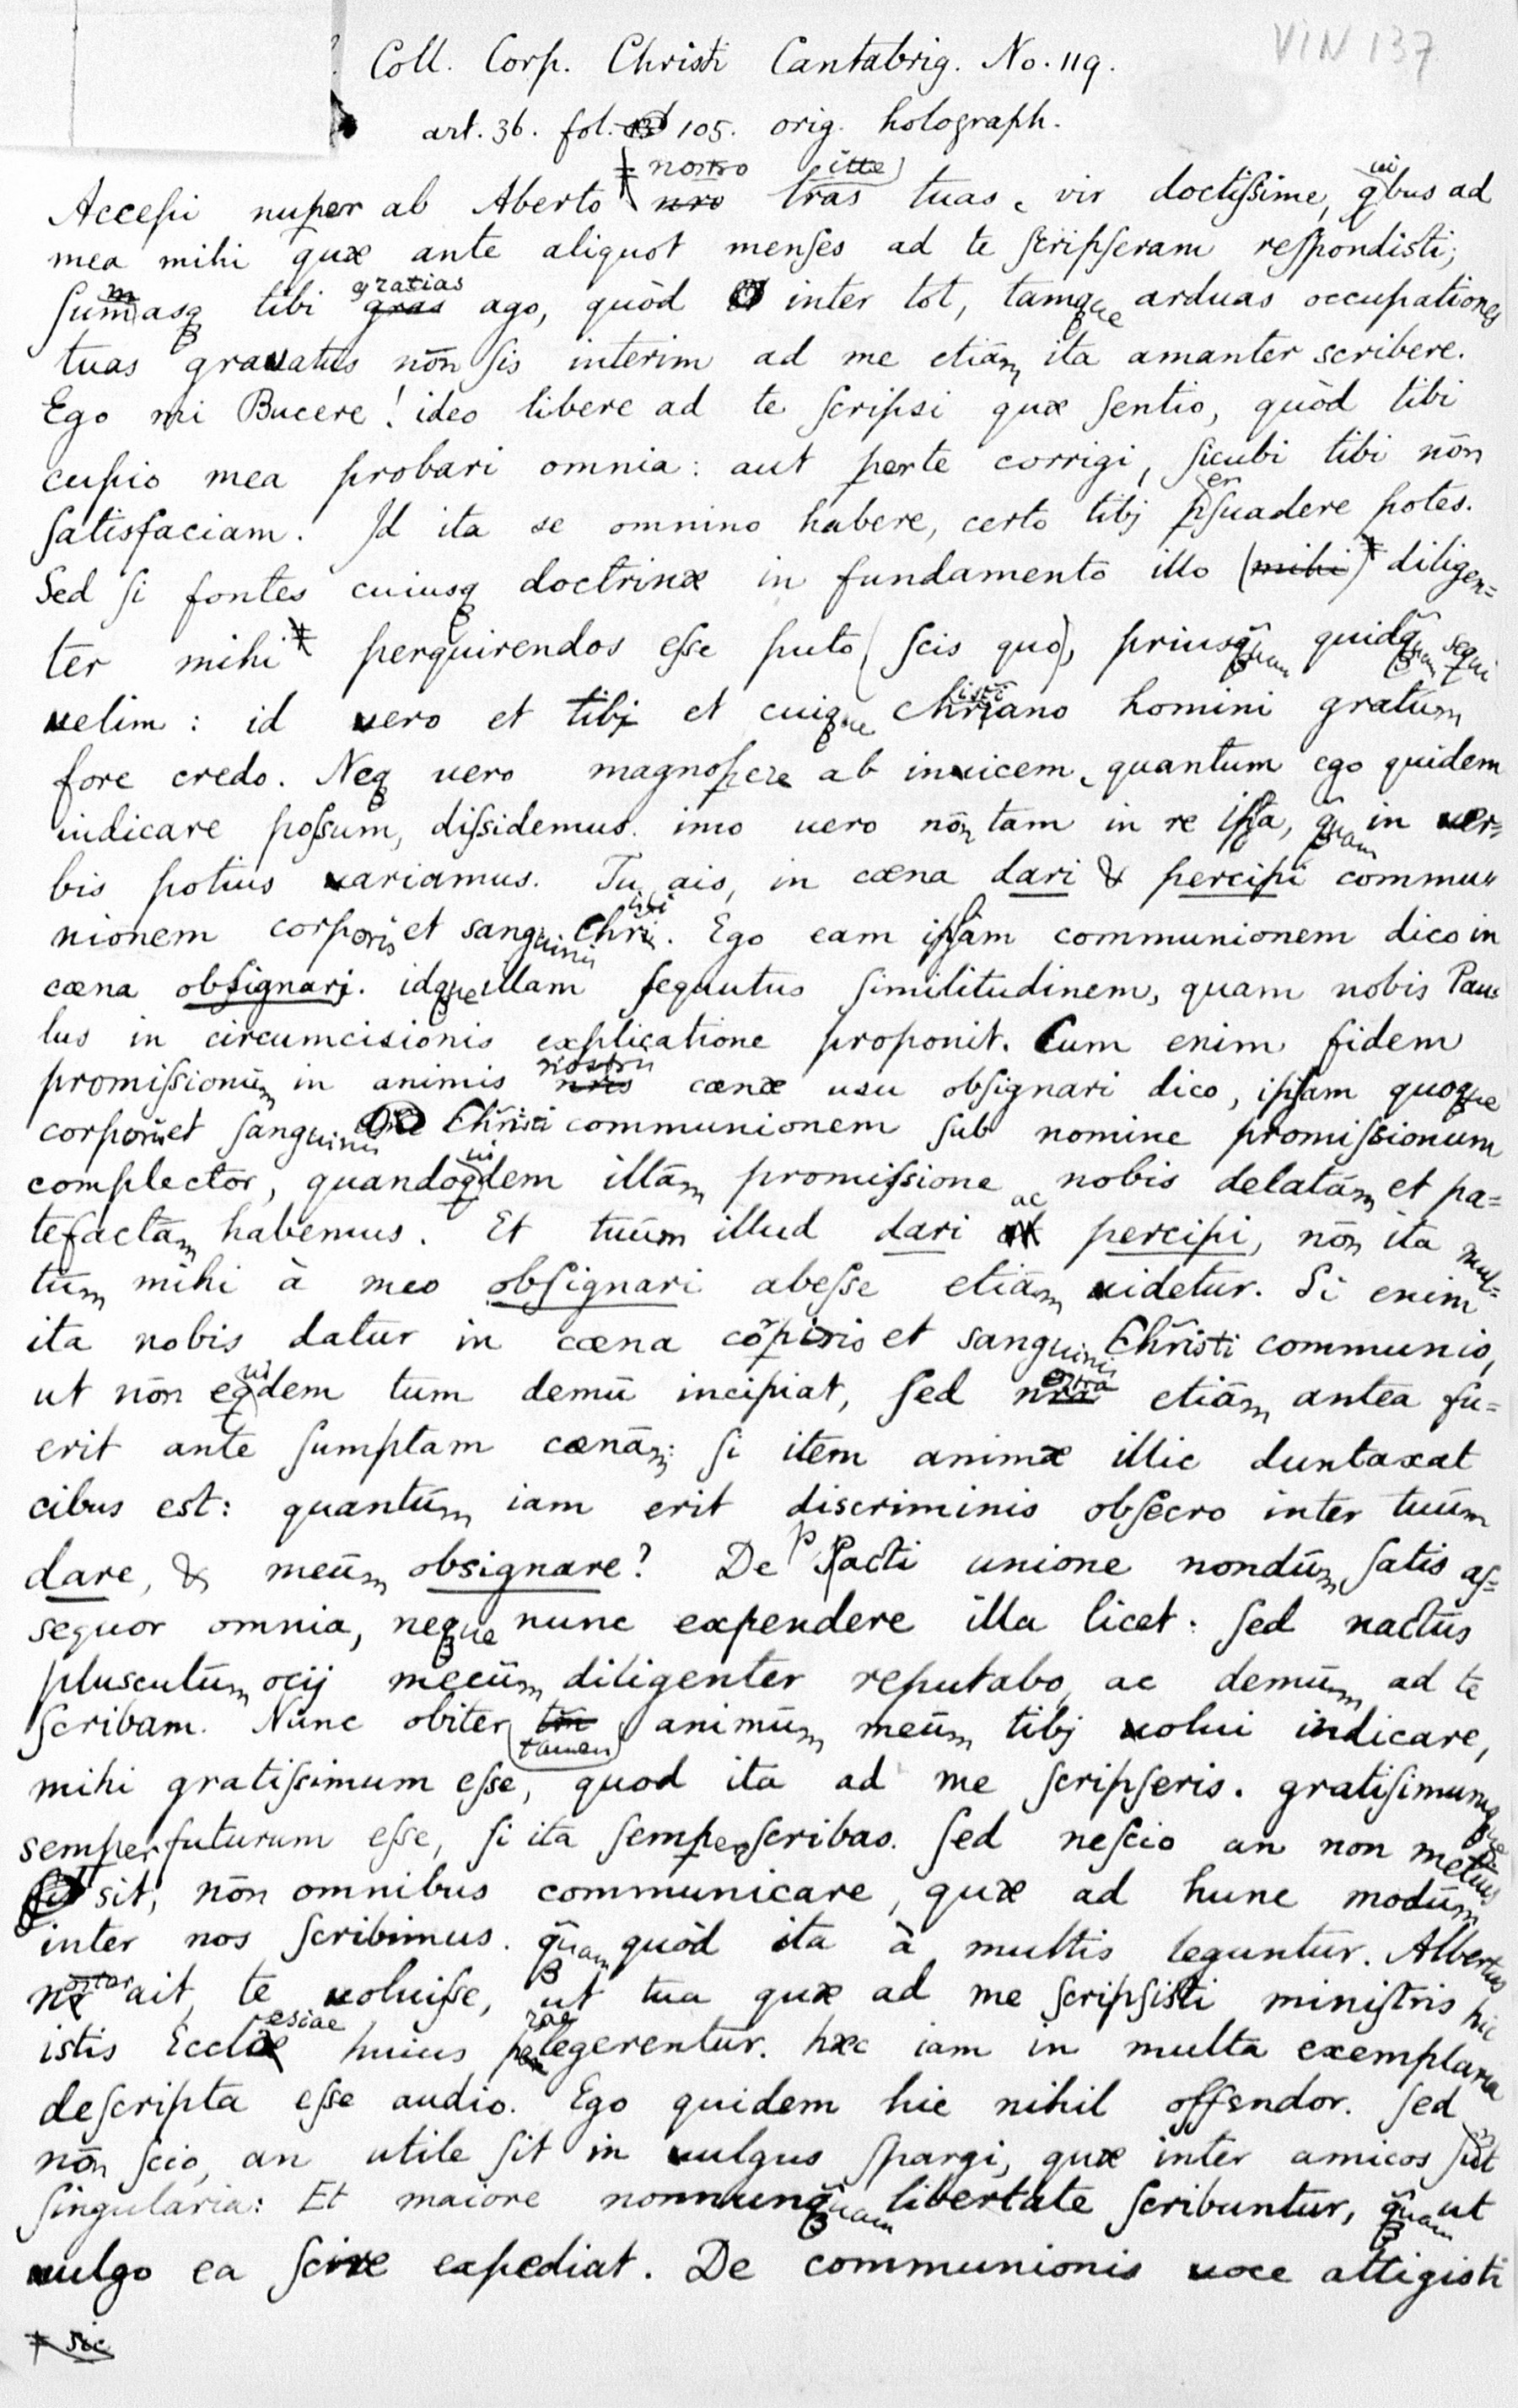 VIN 137
Coll. Corp. Christi Cantabrig. No. 119.
art. 36. fol. 105. orig. holograph.
nostro
Accepi nuper ab Aberto nro lras tuas, vir doctissime, quibus ad
mea mihi quæ ante aliquot menses ad te scripseram respondisti;
Summasq tibi gratias ago, quòd inter tot, tamque arduas occupationes
tuas gravatus nōn sis interim ad me etiām ita amanter scribere.
Ego mi Bucere! ideo libere ad te scripsi quæ sentio, quòd tibi
cupio mea probari omnia: aut per te corrigi, sicubi tibi nōn
satisfaciam. Id ita se omnino habere, certo tibj persuadere potes.
Sed si fontes cuiusq doctrinæ in fundamento illo (mihi) diligen=
ter mihi perquirendos esse puto (scis quo), priusquam quidquam sequi
velim: id vero et tibj et cuique christiano homini gratum
fore credo. Neq uero magnopere ab invicem, quantum ego quidem
iudicare possum, dissidemus. imo uero nōn tam in re ipsa, quam in ver=
bis potius variamus. Tu ais, in cæna dari & percipi commu=
nionem corporis et sanguinis Christi. Ego eam ipsam communionem dico in
cæna obsignarj. idque illam sequutus similitudinem, quam nobis Pau=
lus in circumcisionis explicatione proponit. Cum enim fidem
promissionūm in animis nostris cænæ usu obsignari dico, ipsam quoque
corporis et sanguinis Christi communionem sub nomine promissionum
complector, quandoquidem illām promissione nobis delatām et pa=
tefactām habemus. Et tuūm illud dari ac percipi, nōn ita mul=
tūm mihi à meo obsignari abesse etiām videtur. Si enim
ita nobis datur in cæna cōpiris et sanguinis Christi communio,
ut nōn equidem tum demū incipiat, sed nostra etiām antea fu=
erit ante sumptam cænām: si item animæ illic duntaxat
cibus est: quantūm iam erit discriminis obsecro inter tuūm
dare, & meūm obsignare? De pacti unione nondūm satis as=
sequor omnia, neque nunc expendere illa licet: sed nactus
plusculūm ocij mecūm diligenter reputabo, ac demūm ad te
scribam. Nunc obiter tamen animūm meūm tibj volui indicare,
mihi gratissimum esse, quod ita ad me scripseris. gratisimumque
semper futurum esse, si ita semper scribas. Sed nescio an non metius
sit, nōn omnibus communicare, quæ ad hunc modūm
inter nos scribimus. quam quòd ita à multis leguntur. Albertus
noster ait, te voluisse, ut tua quæ ad me scripsisti ministris hic
istis Ecclesiae huius prælegerentur. hæc iam in multa exemplaria
descripta esse audio. Ego quidem hic nihil offendor. Sed
nōn scio, an utile sit in vulgus spargi, quæ inter amicos sunt
singularia: Et maiore nonnunquam libertate scribuntur, quam ut
vulgo ea scire expediat. De communionis voce attigisti
sic